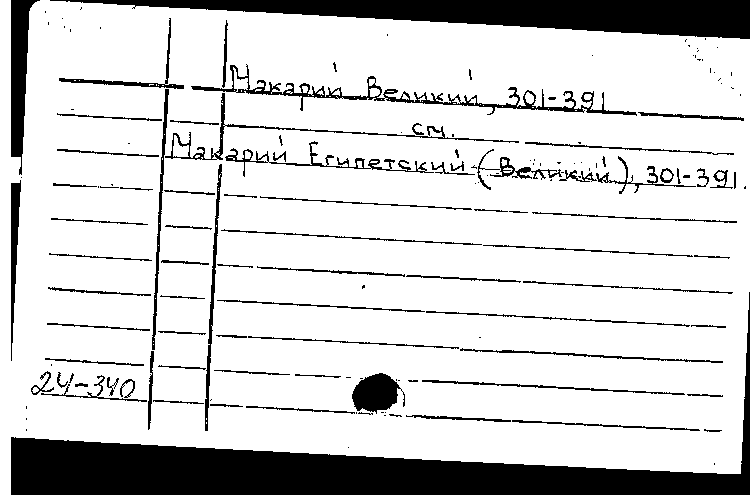 Макарий Великий, 301-391
см.
Макарий Египетский (Великий), 301-391.
24-340